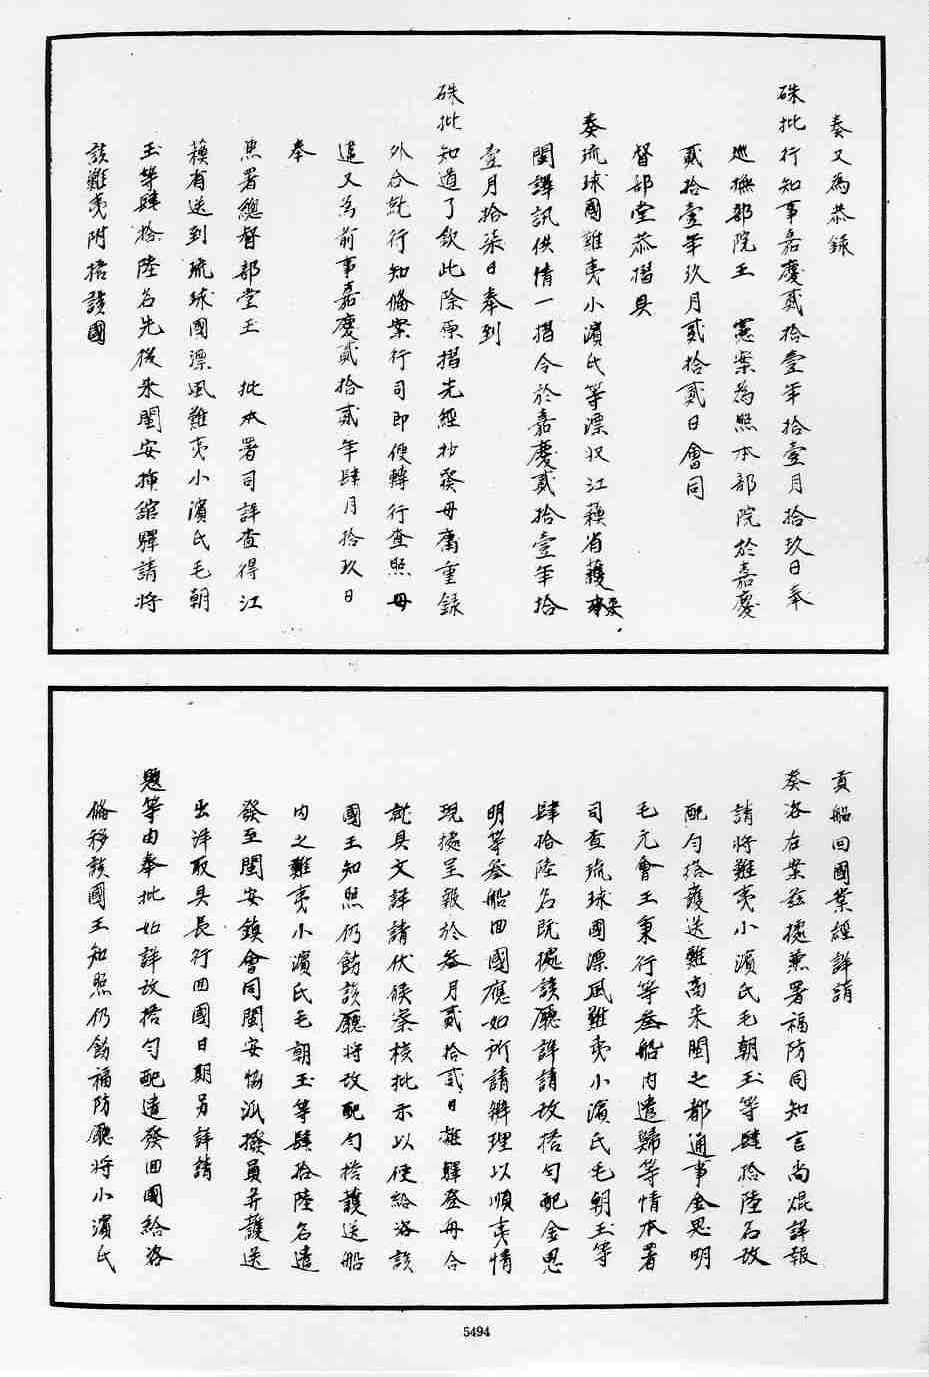 奏又為恭錄
硃批行知事嘉慶貳拾壹年拾壹月拾玖日奉
巡撫部院王 憲案為照本部院於嘉慶
貳拾壹年玖月貳拾貳日會同
督部堂恭摺具
奏琉球國難夷小濱氏等漂收江蘓省護來
閩譯訊供情一摺今於嘉慶貳拾壹年拾
壹月拾柒日奉到
硃批知道了欽此除原摺先經抄發毋庸重錄
外合就行知俻案行司即便轉行查照毋
違又為前事嘉慶貳拾貳年肆月拾玖日
奉
兼署總督部堂王 批本署司詳查得江
蘓省送到琉球國漂風難夷小濱氏毛朝
玉等肆拾陸名先後來閩安揷館驛請將
該難夷附搭該國
貢船回國業經詳請
奏咨在案茲據兼署福防同知言尚焜詳報
請將難夷小濱氏毛朝玉等肆拾陸名改
配勻搭護送難商來閩之都通事金思明
毛元會王秉行等叁船內遣歸等情本署
司查琉球國漂風難夷小濱氏毛朝玉等
肆拾陸名既據該廳詳請改搭勻配金思
明等叁船回國應如所請辦理以順夷情
現據呈報於叁月貳拾貳日離驛登舟合
就具文詳請伏候察核批示以便給咨該
國王知照仍飭該廳將改配勻搭護送船
內之難夷小濱氏毛朝玉等肆拾陸名遣
發至閩安鎮會同閩安恊派撥員弁護送
出洋取具長行回國日期另詳請
題等由奉批如詳改搭勻配遣發回國給咨
俻移該國王知照仍飭福防廳將小濱氏
5494